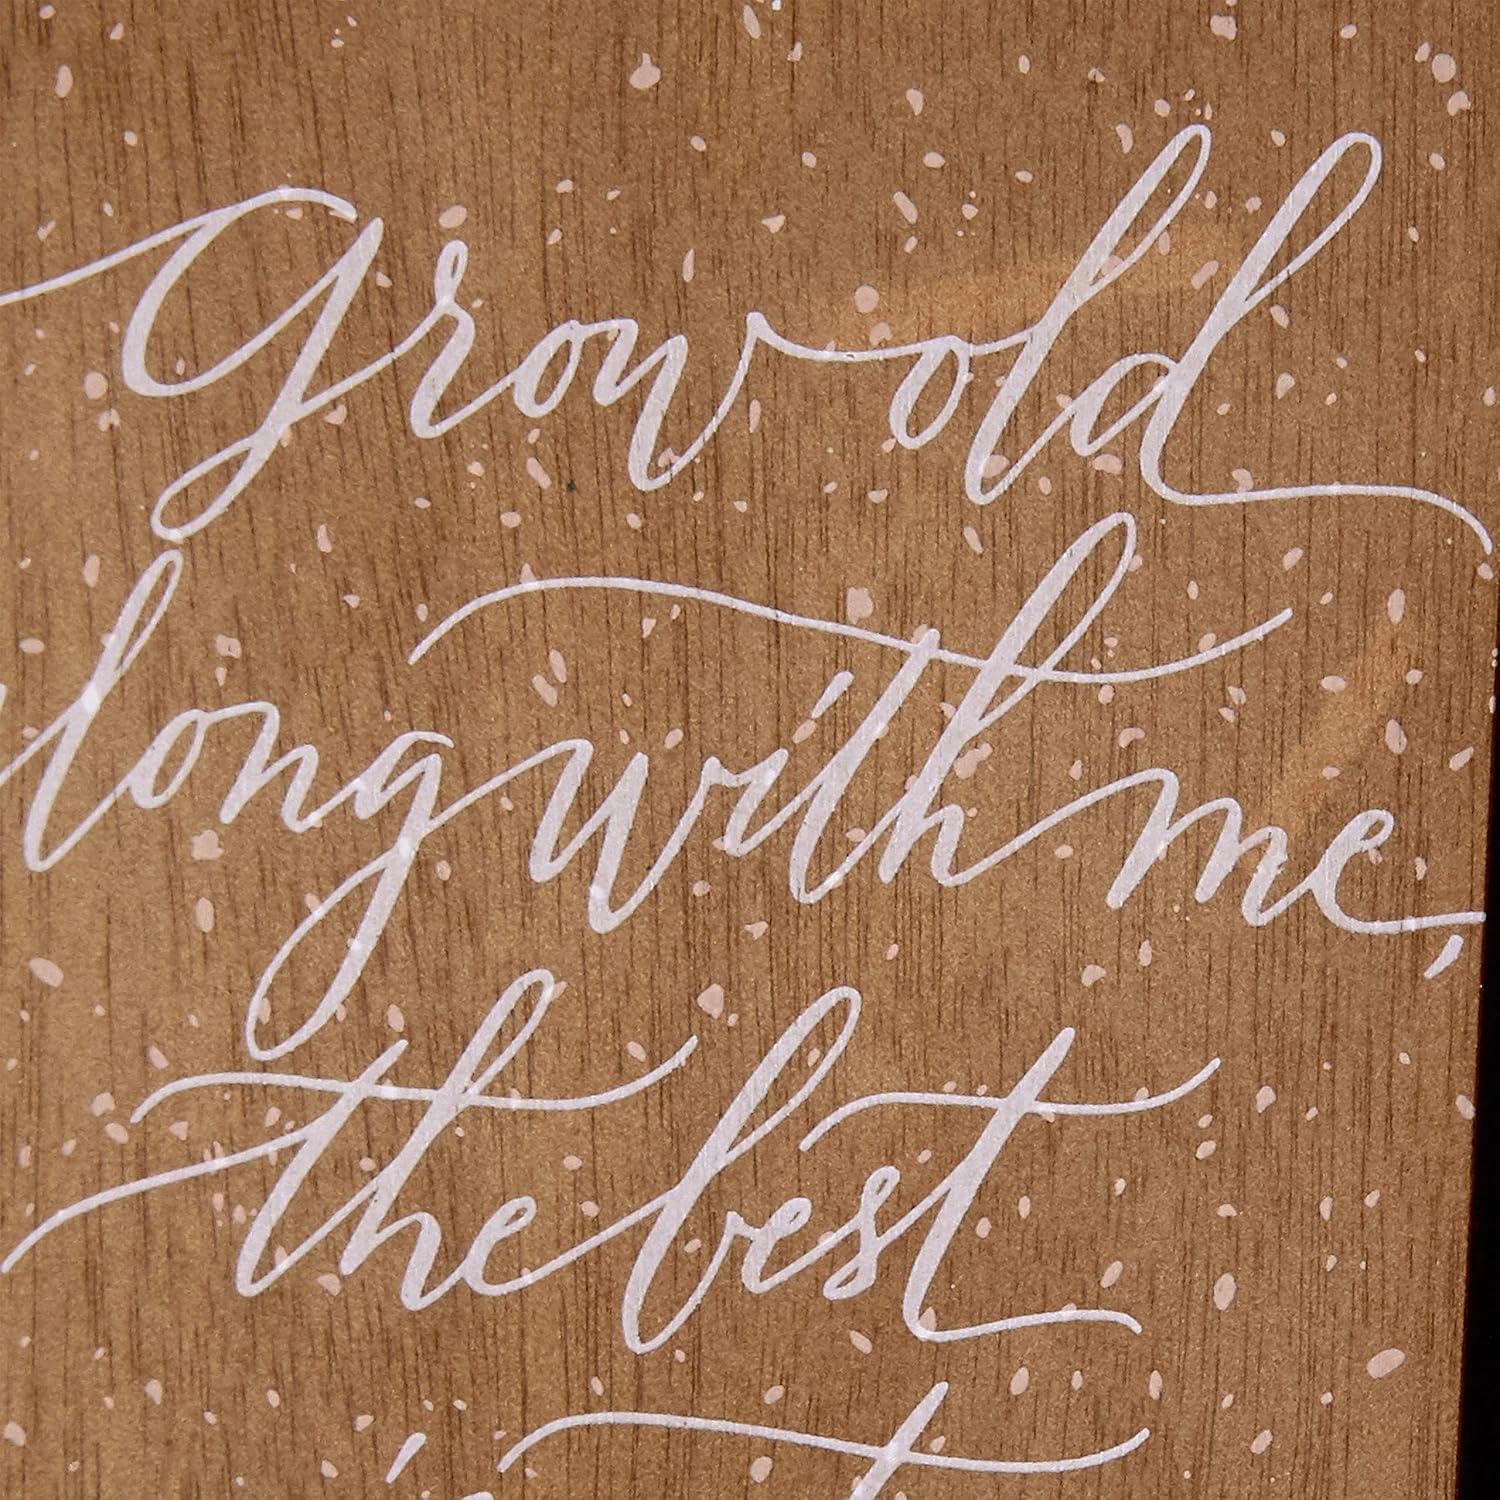 Grow old
long with me,
the best